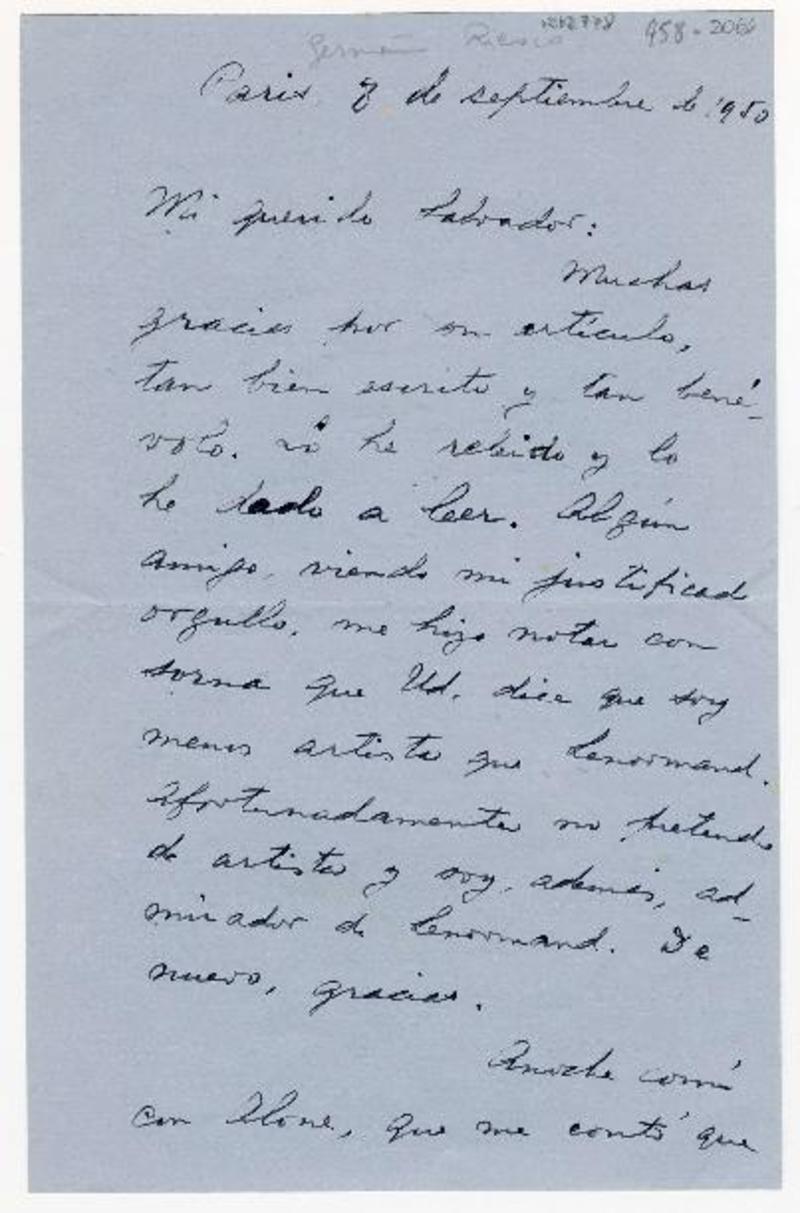 Germán Riesco 958-2066
Paris, 7 de septiembre de 1950
Mi querido Salvador:
Muchas
gracias por su artículo,
tan bien escrito y tan bené-
volo. Lo he releido y lo
he dado a leer. Algún
amigo, viendo mi justificado
orgullo, me hizo notar con
sorna que Ud. dice que soy
menos artista que Lenormand.
Afortunadamente no pretendo
de artista y soy, además, ad-
mirador de Lenormand. De
nuevo, gracias.
Anoche comí
con Alone, que me contó que